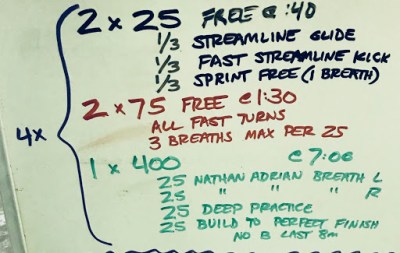 2 x 25 FREE @ :40
1/3 STREAMLINE GLIDE
1/3 FAST STREAMLINE KICK
1/3 SPRINT FREE (1 BREATH)
2 x 75 FREE @ 1:30
ALL FAST TURNS
3 BREATHS MAX PER 25
4x
1 x 400 @ 7:00
25 NATHAN ADRIAN BREATH L
25 " " " R
25 DEEP PRACTICE
25 BUILD TO PERFECT FINISH
NO B LAST 8m